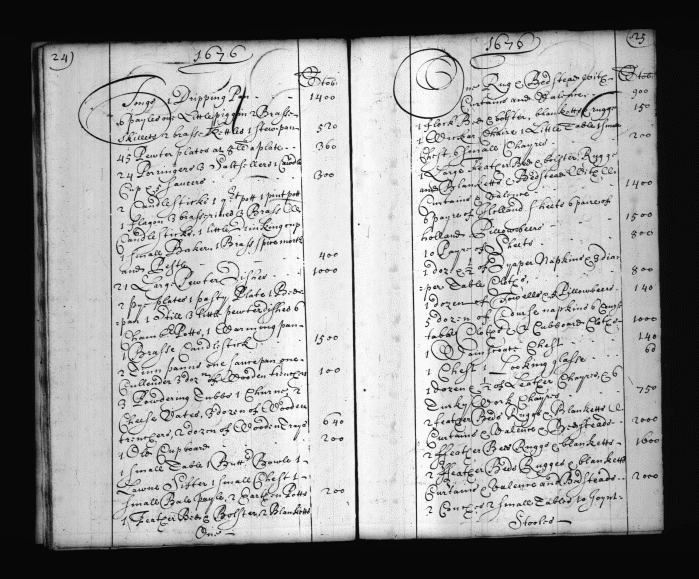 24)
1676
Tobo
1 Dripping Pan
1400
6 payles one Little piggin 2 Brasse
Skillets 2 brasse Kettles 1 stew pan
520
45 Pewter plates at 8 ll a plate
360
24 Porringers 3 Saltsellers 1 Caudle
Cup 5 Saucers
300
2 Candlesticks 1 pott 1 pint pott
1 Flagon 3 2 Brass
Candlesticks, 1 little drinking cup
1 small Baker 1 Brass spice mortr
and Pestle
400
21 Large Pewter Dishes
1000
2 pye plates 1 pasty Plate 1 Bedd
pan 1 Still 3 little pewter dishes 6
Chamber Potts, 1 Warming pan
1 Brasse Candlestick
1500
2 Tinn panns one saucepan one
Cullender 3 doz of Wooden trenchrs
100
3 Powdering Tubbs 1 Churne 2
Cheese Vates, 3 dozen of Wooden
trenchers, 2 dozen of Wooden Trays
640
1 Old Cupboard
200
1 small Table 1 Butter Bowle 1
Lawne Sifter 1 small Chest 1
small Bale payle, 2 Earthen Potts
200
1 Feather Bed & Bolster, 2 Blanketts
One
25
1676
One Rug & Bedstead with
Tobo
Curtains and Valence
900
1 flock Bed & bolster, blanketts & rugge
150
1 Wicker Chaire 1 Little Table 1 small
Chest 3 small Chayres
200
1 Large Feather Bed & bolster, Rugge
and Blanketts & Bedstead with
Curtains & Valence
1400
6 payre of Holland sheets 6 pare of
holland Pillowbeers
1500
10 Payre of Sheets
800
1 dozen & ½ of Diaper Napkins & 3 dia
per Table Clothes
800
1 dozen of Towells & Pillowbeers
140
5 dozen of Course napkins 6 Course
table Clothes & 2 Cubboard Clothes
1000
1 Chest
140
1 Chest 1 Looking glasse
60
1 dozen & ½ of Leather Chayres, & 6
Turky Work Chayres
750
2 feather Beds Ruggs & Blanketts
Curtains & Valence & Bedsteads
2000
2 ffeather Beds Ruggs & blanketts
1600
2 ffeather Beds Rugges & blanketts
Curtains & Valence and Bedsteads
2000
2 Couches 2 small Tables 10 Joynt
Stooles